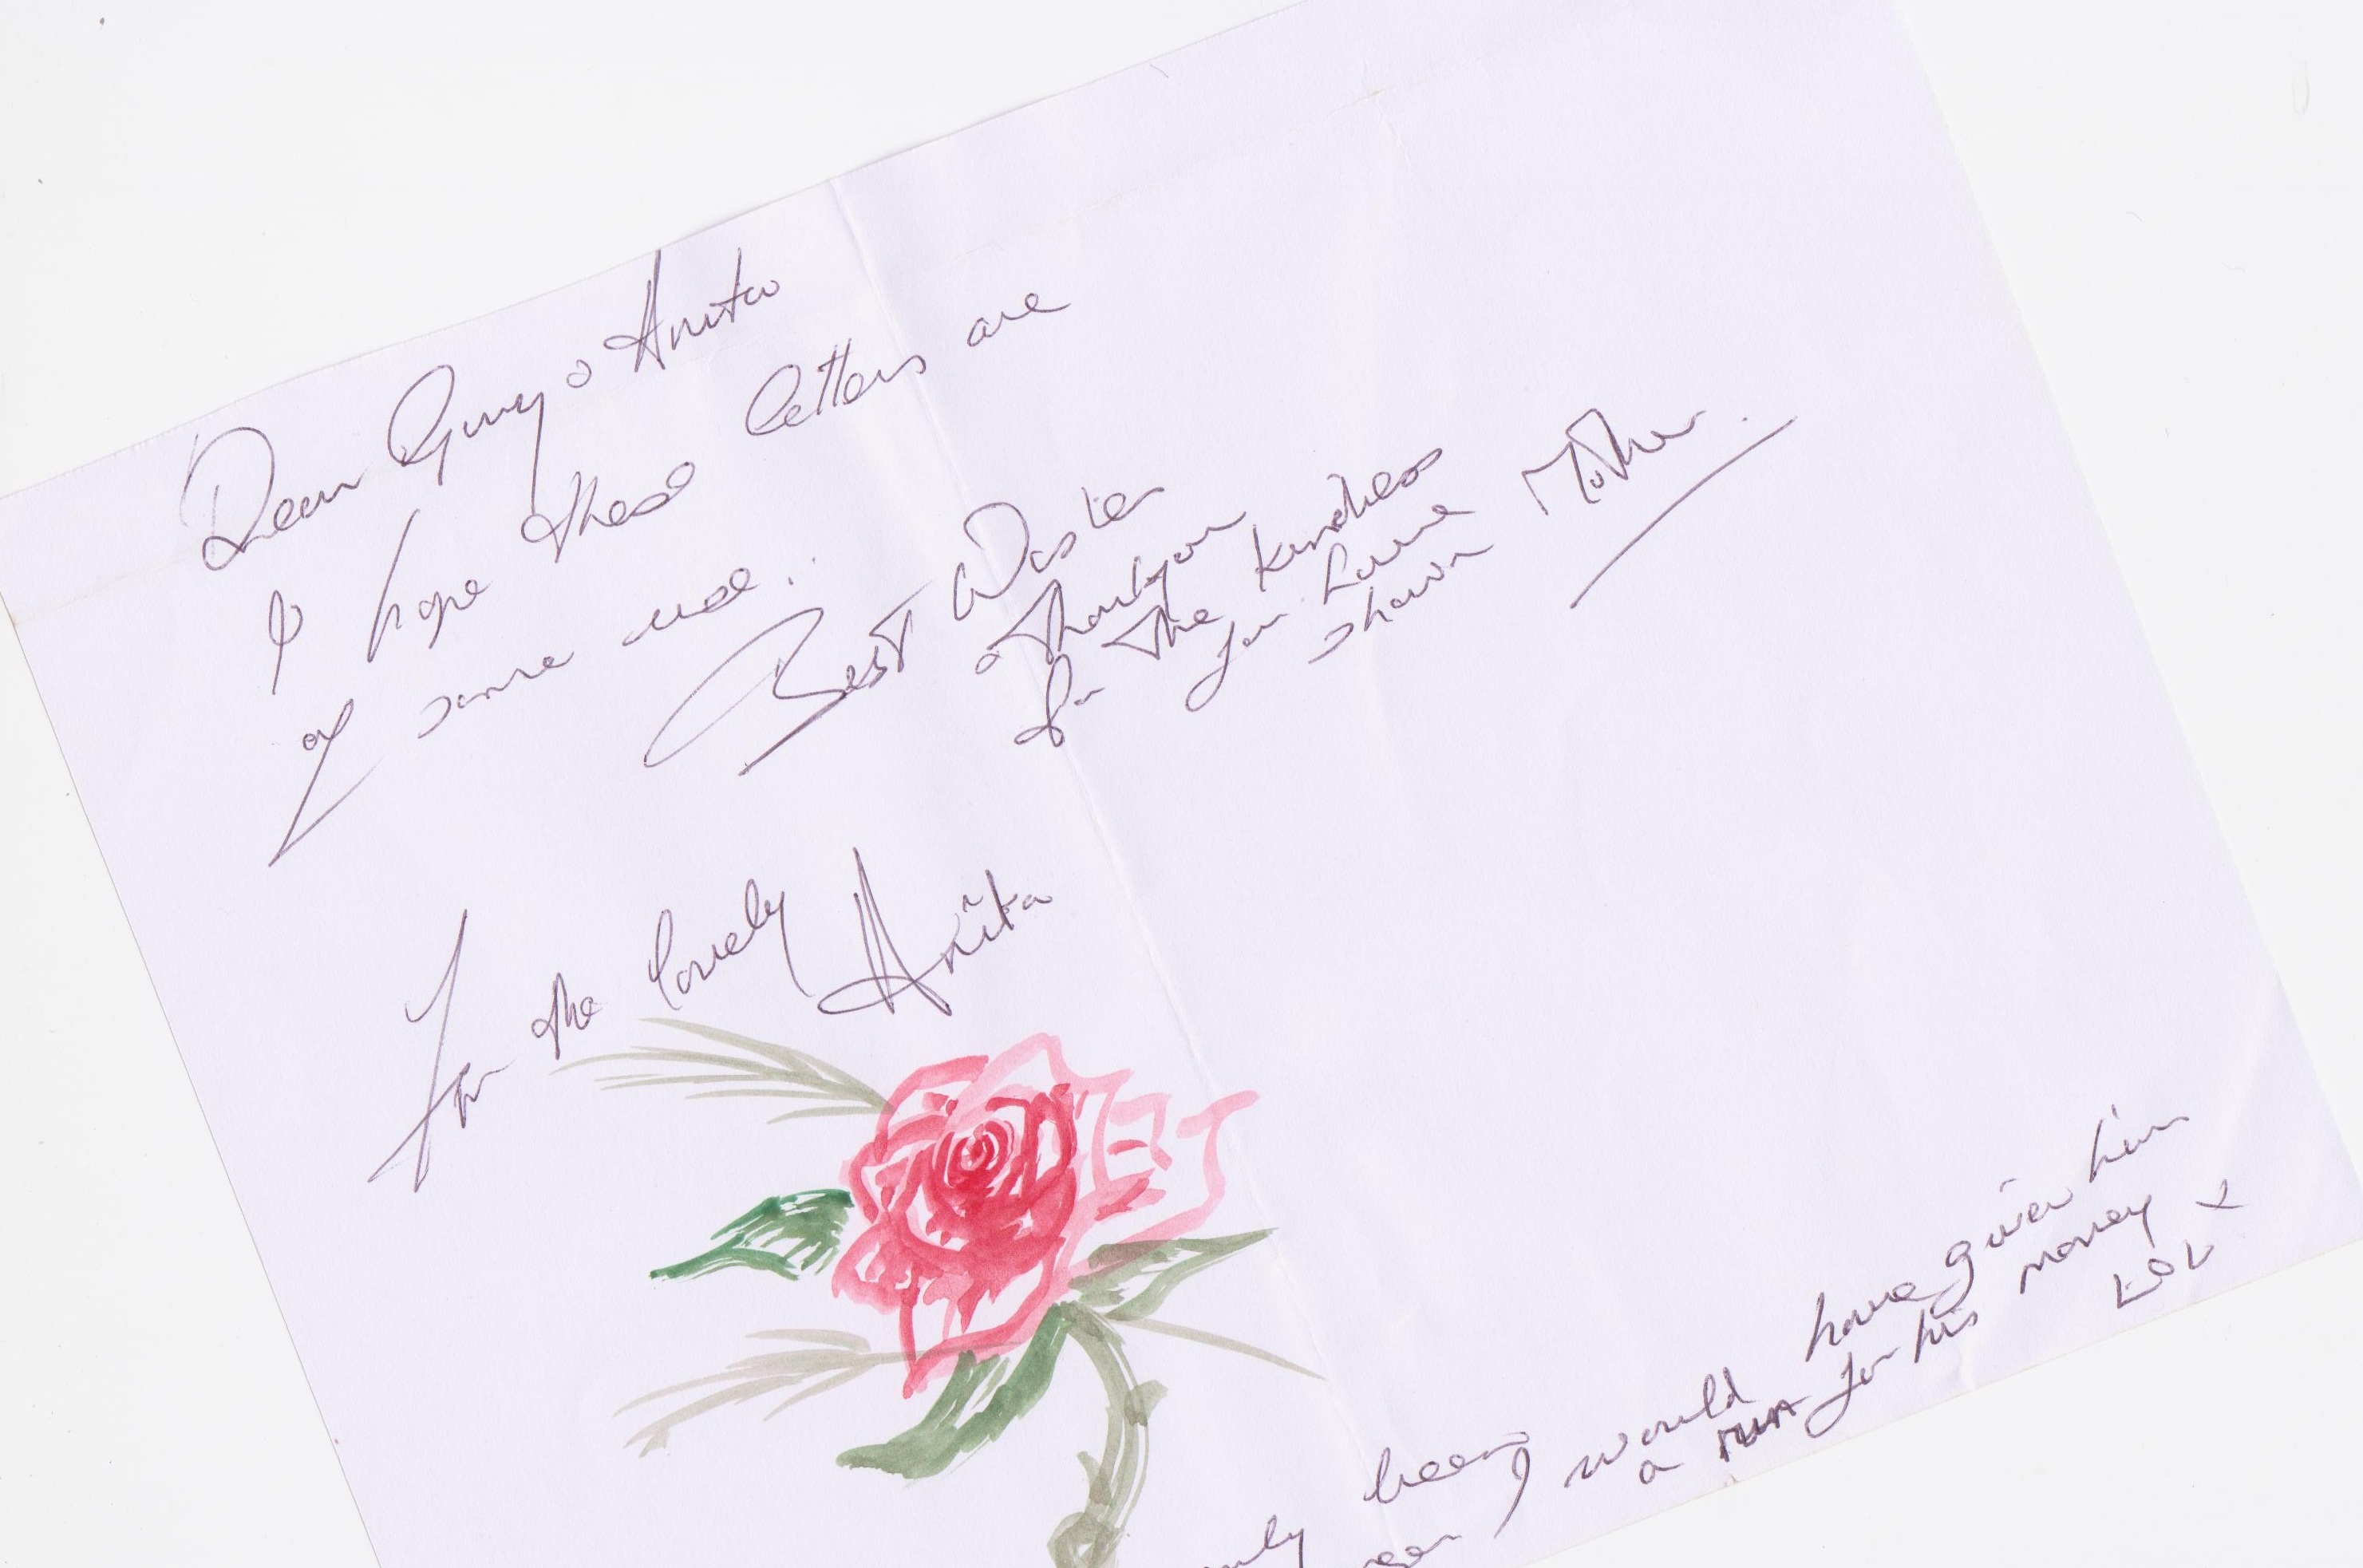 Dear Gary & Anita
I hope these letters are
of some use..
Best Wishes
& Thankyou
for The kindness
you have
shown Mother.
For the lovely Anita
been I would have given him
a run for his money
LOL x